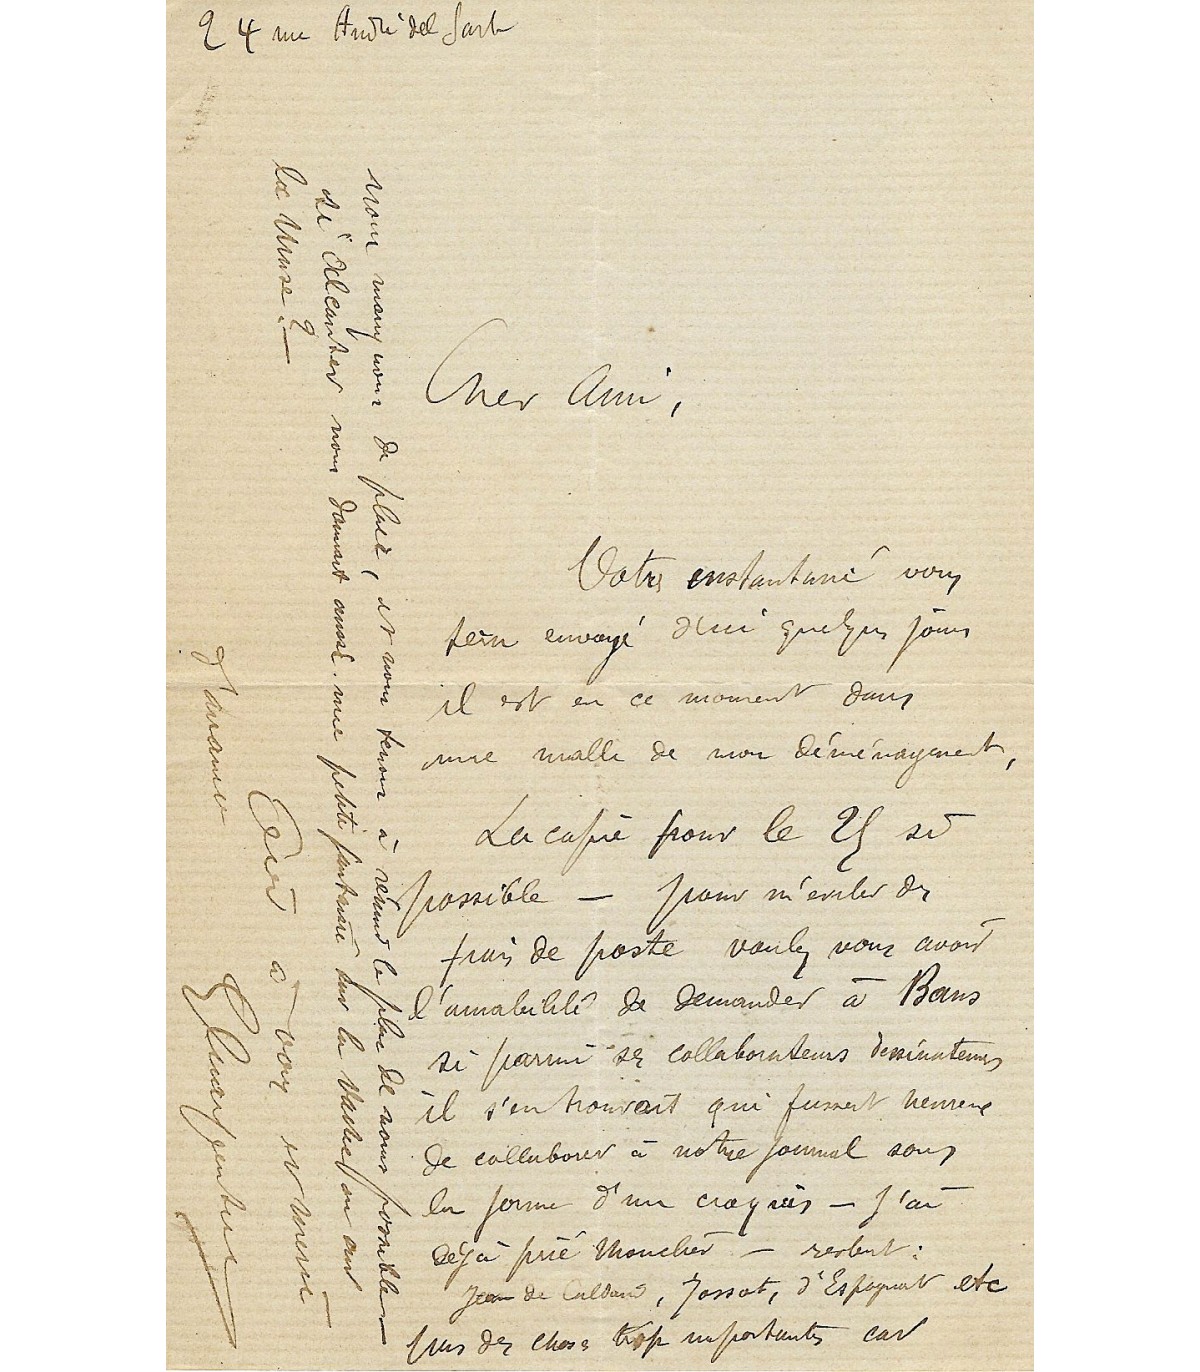 24 rue André del Sarte
Cher Ami,
Votre instantané vous
sera envoyé d'ici quelques jours
il est en ce moment dans
une malle de mon déménagement,
La copie pour le 25 si
possible — pour m'éviter des
frais de poste voulez vous avoir
l'amabilité de demander à Bans
si parmi ses collaborateurs dessinateurs
il s'en trouvait qui fussent heureux
de collaborer à notre journal sous
la forme d'un croquis — J'ai
déjà prié — restent :
Jean de Caldain, Jossot, d'Espagnat etc
pas des choses trop importantes car
nous manquons de place, et nous tenons à rendre le plus de nous possible —
si Alcanter nous donnait aussi une petite fantaisie sur la vache ou sur
la Muse ? —
d'avance
à vous et merci